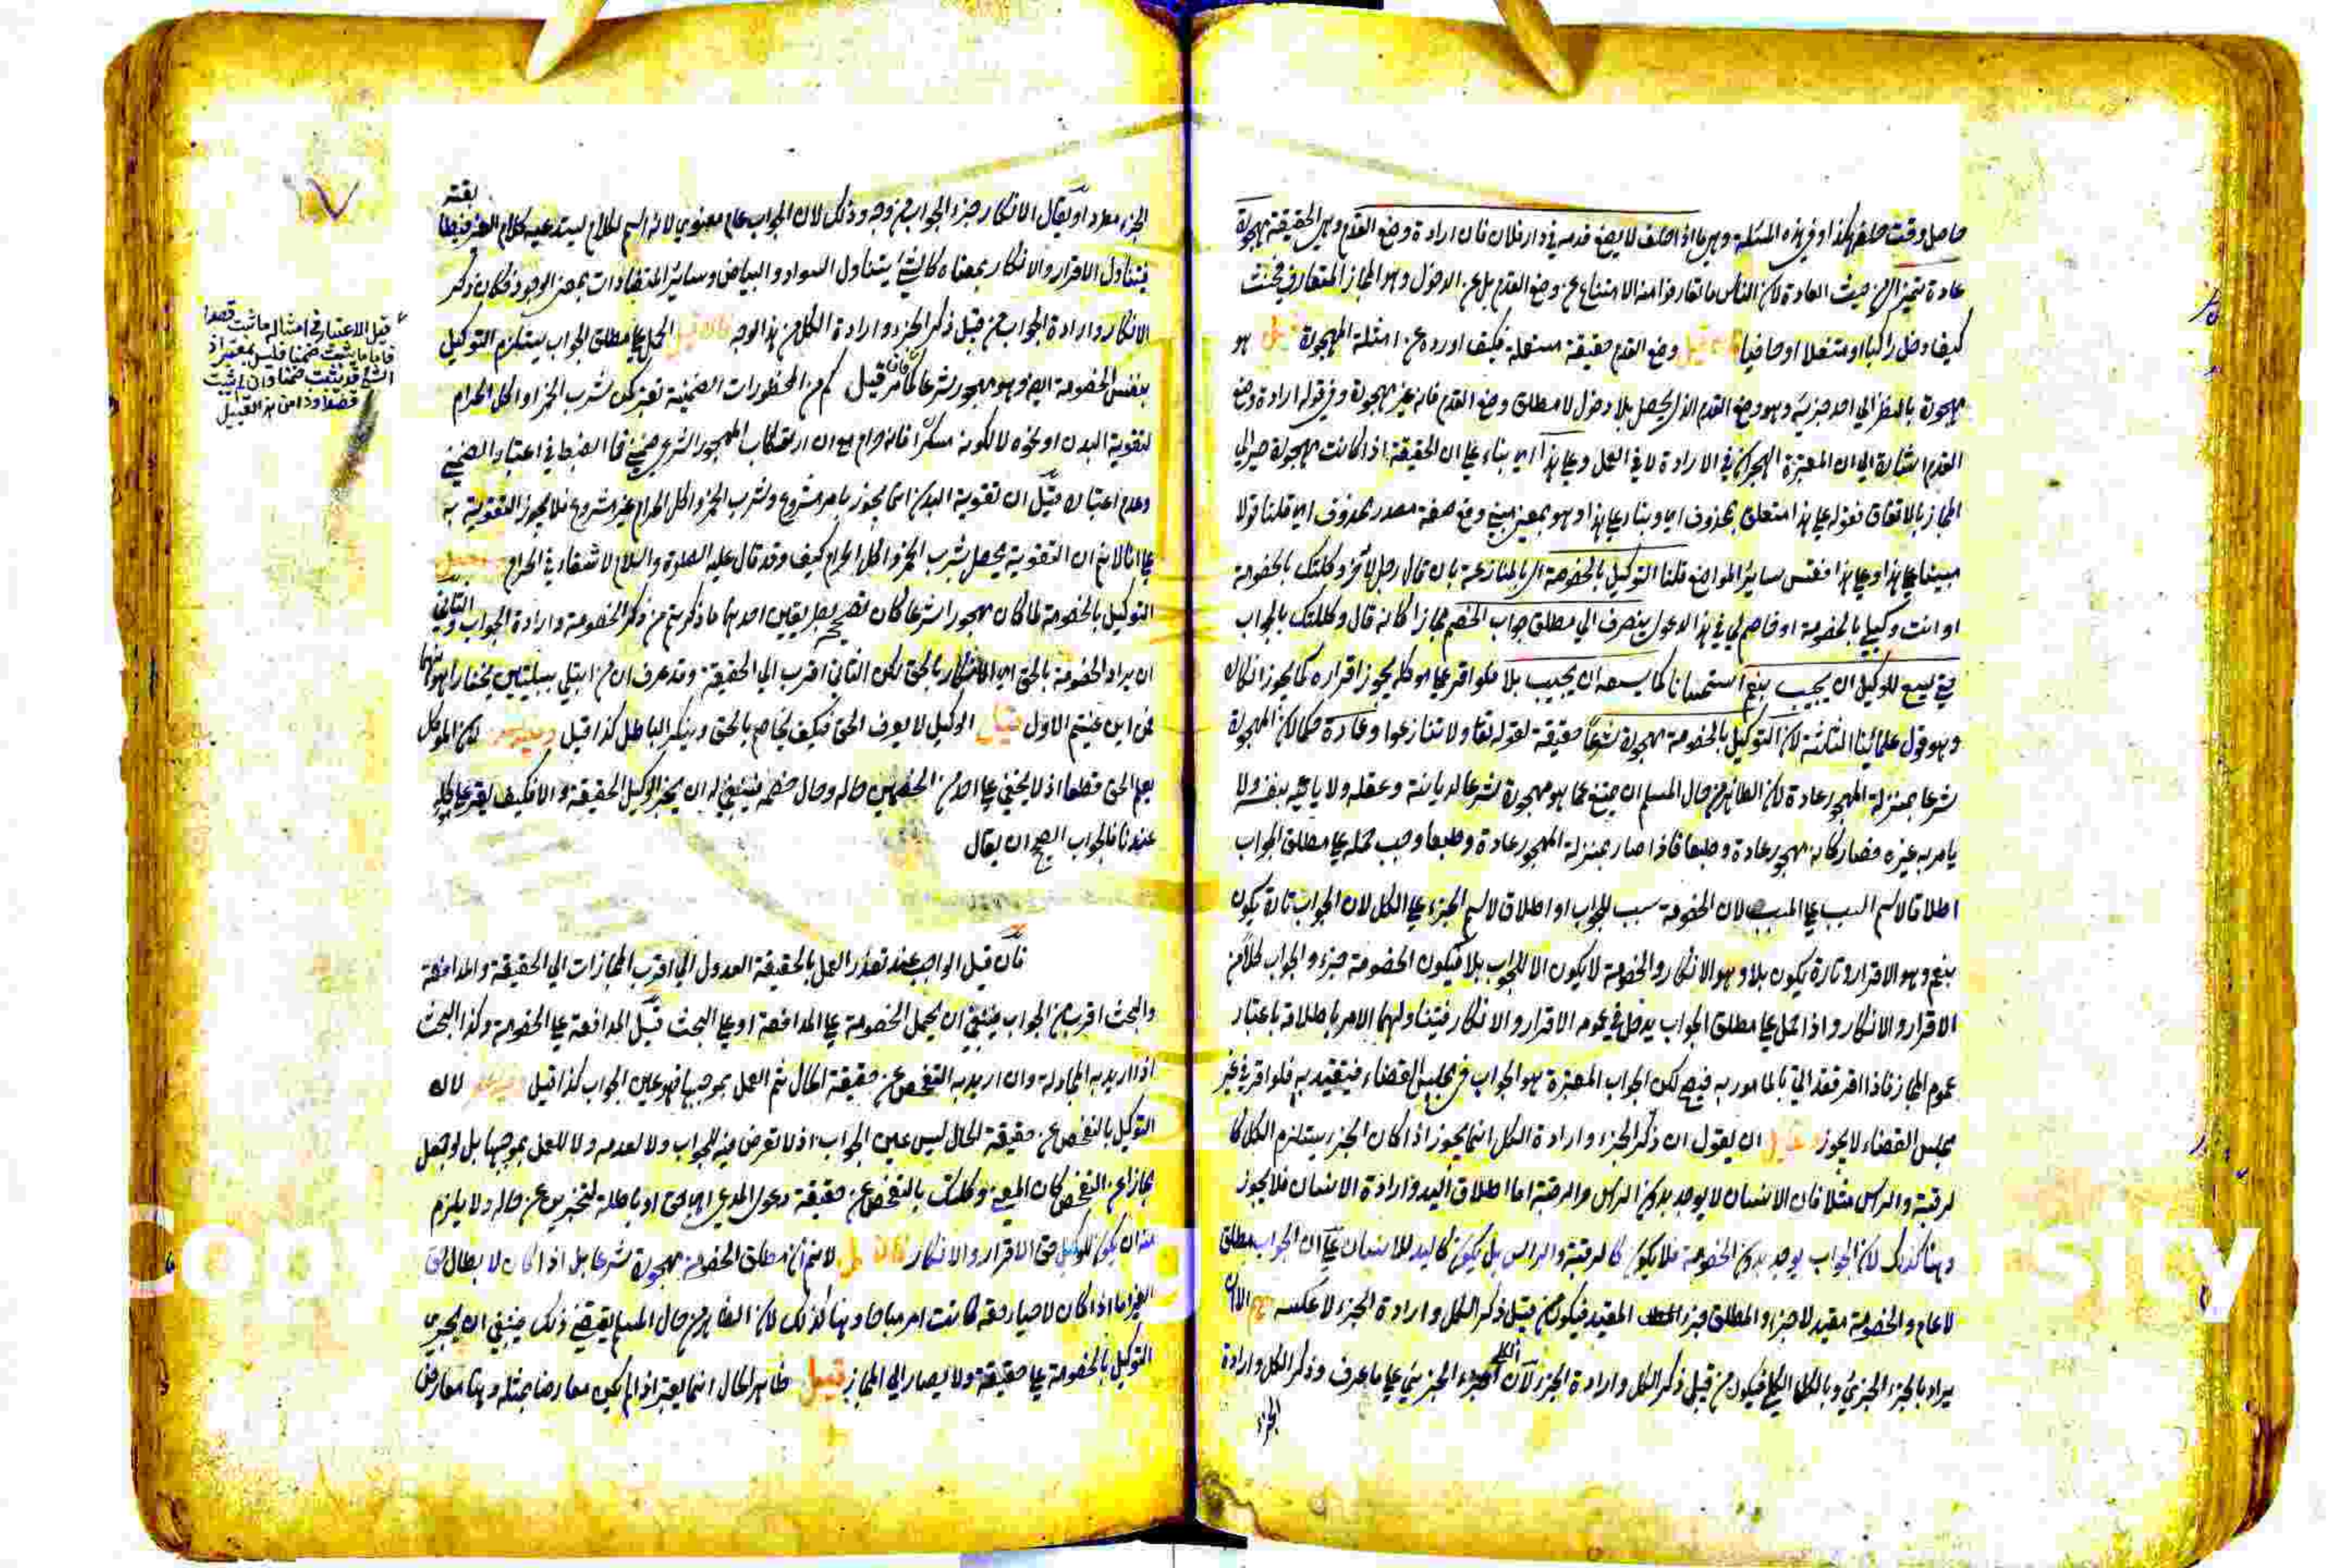 حاصل وقت حلفه هكذا وفي هذه المسئلة وهي ما اذا حلف لا يضع قدمه في دار فلان فان ارادة وضع القدم وهي الحقيقة مهجورة
عادة من حيث العادة لان الناس ما تعارفوا منه الامتناع عن وضع القدم بل عن الدخول وهو المجاز المتعارف فيحنث
كيف دخل راكبا او متنعلا او حافيا وضع القدم حقيقة مستعملة فكيف اورده عن امثلة المهجورة قيل هو
مهجورة بالنظر الى احد جزئيه وهو وضع القدم الذي يحصل بلا دخول لا مطلق وضع القدم فانه غير مهجورة وفي قوله ارادة وضع
القدم اشارة الى ان المعتبرة الهجران في الارادة لا في العمل وعلى هذا اي بناء على ان الحقيقة اذا كانت مهجورة صير الى
المجاز بالاتفاق فقوله على هذا متعلق بمحذوف اي وبناء على هذا وهو بمعنى مبني وقع صفة مصدر محذوف اي قلنا قولا
مبنيا على هذا وعلى هذا فقس سائر المواضع قلنا التوكيل بالخصومة اي بالمنازعة بان قال رجل لاخر وكلتك بالخصومة
او انت وكيلي بالخصومة او خاصم لي في هذا الدعوى ينصرف الى مطلق جواب الخصم مجازا كانه قال وكلتك بالجواب
حتى يسع للوكيل ان يجيب بنعم استحسانا كما يسعه ان يجيب بلا فلو اقر على موكله يجوز اقراره كما يجوز انكاره
وهو قول علمائنا الثلثة لان التوكيل بالخصومة مهجورة شرعا حقيقة لقوله تعا ولا تنازعوا وعادة حكما لان المهجورة
شرعا بمنزلة المهجور عادة لان الظاهر من حال المسلم ان يمتنع عما هو مهجورة شرعا لديانته وعقله ولا ياتيه بنفسه ولا
يامر به غيره فصار كانه مهجور عادة وطبعا فاذا صار بمنزلة المهجور عادة وطبعا وجب حمله على مطلق الجواب
اطلاقا لاسم السبب على المسبب لان الخصومة سبب للجواب او اطلاق لاسم الجزء على الكل لان الجواب تارة يكون
بنعم وهو الاقرار وتارة يكون بلا وهو الانكار والخصومة لا يكون الا للجواب بلا فيكون الخصومة جزء والجواب كلا من
الاقرار والانكار واذا حمل على مطلق الجواب يدخل في عمومه الاقرار والانكار فيتناولهما الامر باطلاقه باعتبار
عموم المجاز فاذا اقر فقد اتى بالمامور به فيصح لكن الجواب المعتبرة هو الجواب في مجلس القضاء فيتقيد به فلو اقر في غير
مجلس القضاء لا يجوز ان يقول ان ذكر الجزء وارادة الكل انما يجوز اذا كان الجزء يستلزم الكل كا
لرقبة والراس مثلا فان الانسان لا يوجد بدون الراس والرقبة اما اطلاق اليد وارادة الانسان فلا يجوز
وهنا كذلك لان الجواب يوجد بدون الخصومة فلا يكون كالرقبة والراس بل يكون كاليد للانسان على ان الجواب مطلق
لا عام والخصومة مقيد لا جزء والمطلق جزء المقيد فيكون من قبيل ذكر الكل وارادة الجزء لا عكسه الا ان
يراد بالجزء الجزئي وبالكل الكلي فيكون من قبيل ذكر الكل وارادة الجزء لان الكلي جزء الجزئي على ما عرف وذكر الكل وارادة
الجزء
الجزء او يقال الانكار جزء الجواب من وجه وذلك لان الجواب عام معنوي لانه اسم لكلام يستدعيه كلام الغير
فيتناول الاقرار والانكار بمعناه كالشيء يتناول السواد والبياض وسائر المتضادات بمعنى الوجود فكان ذكر
الانكار وارادة الجواب من قبيل ذكر الجزء وارادة الكل من هذا الوجه فان قيل الحمل على مطلق الجواب يستلزم التوكيل
بنفس الخصومة ايضا وهو مهجور شرعا كما مر قيل كم من المحظورات الضمنية تعتبر كمن شرب الخمر او اكل الحرام
لتقوية البدن او نحوه لا لكونه مسكرا فانه حرام مع ان ارتكاب المهجور الشرعي ضمني فما الضبط في اعتبار الضمني
وعدم اعتباره قيل ان تقوية البدن انما يجوز بامر مشروع وشرب الخمر واكل الحرام غير مشروع فلا يجوز التقوية به
على انا لا نم ان التقوية يحصل بشرب الخمر واكل الحرام كيف وقد قال عليه الصلوة والسلام لا شفاء في الحرام
التوكيل بالخصومة لما كان مهجورا شرعا كان تصحيحه بطريقين احدهما ما ذكرتم من ذكر الخصومة وارادة الجواب والثاني
ان يراد الخصومة بالحق اي الانكار بالحق لكن الثاني اقرب الى الحقيقة وقد عرف ان من ابتلي ببليتين يختار اهونهما
فمن اين عينتم الاول قيل الوكيل لا يعرف الحق فكيف يخاصم بالحق وينكر الباطل كذا قيل لان الموكل
يعلم الحق قطعا اذ لا يخفى على احد من الخصمين حاله وحال خصمه فينبغي له ان يخبر الوكيل الحقيقة والا فكيف يقر على موكله
عندنا فالجواب الصحيح ان يقال
فان قيل الواجب عند تعذر العمل بالحقيقة العدول الى اقرب المجازات الى الحقيقة والمدافعة
والبحث اقرب من الجواب فينبغي ان يحمل الخصومة على المدافعة او على البحث قيل المدافعة على الخصومة وكذا البحث
اذا اريد به المجادلة وان اريد به التفحص عن حقيقة الحال ثم العمل بموجبها فهو عين الجواب كذا قيل لان
التوكيل بالتفحص عن حقيقة الحال ليس عين الجواب اذ لا تعرض فيه للجواب ولا لعدمه ولا للعمل بموجبها بل لو جعل
مجازا عن التفحص كان المعنى وكلتك بالتفحص عن حقيقة دعوى المدعي اهي حق او باطلة لتخبرني عن حاله ولا يلزم
منه ان يكون للوكيل حق الاقرار والانكار فان قيل لا نم ان مطلق الخصومة مهجورة شرعا بل اذا كان لابطال حق
الغير اما اذا كان لاحياء حقه كانت امر مباحا وهنا كذلك لان الظاهر من حال المسلم يقتضي ذلك فينبغي ان يجري
التوكيل بالخصومة على حقيقته ولا يصار الى المجاز قيل ظاهر الحال انما يعتبر اذا لم يكن معارضا بمثله وهنا معارض
قيل الاعتبار في امثاله ما ثبت قصدا
فاما ما يثبت ضمنا فليس بمعتبر اذ
الشيء قد يثبت ضمنا وان لم يثبت
قصدا وذا من هذا القبيل